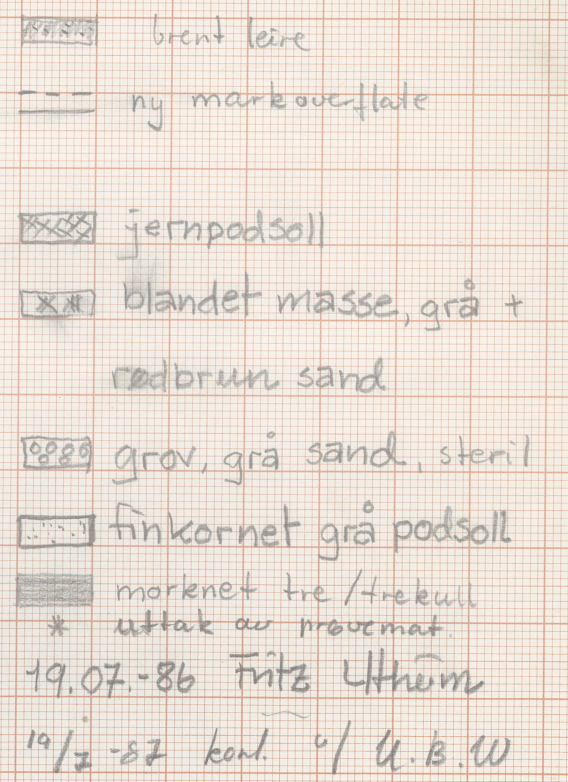 brent leire
ny markoverflate
jernpodsoll
blandet masse, grå +
rødbrun sand
grov, grå sand, steril
finkornet grå podsoll
morknet tre / trekull
uttak av prøvemat.
19.07.-86 Fritz
19/7 -87 v/ U.B.W